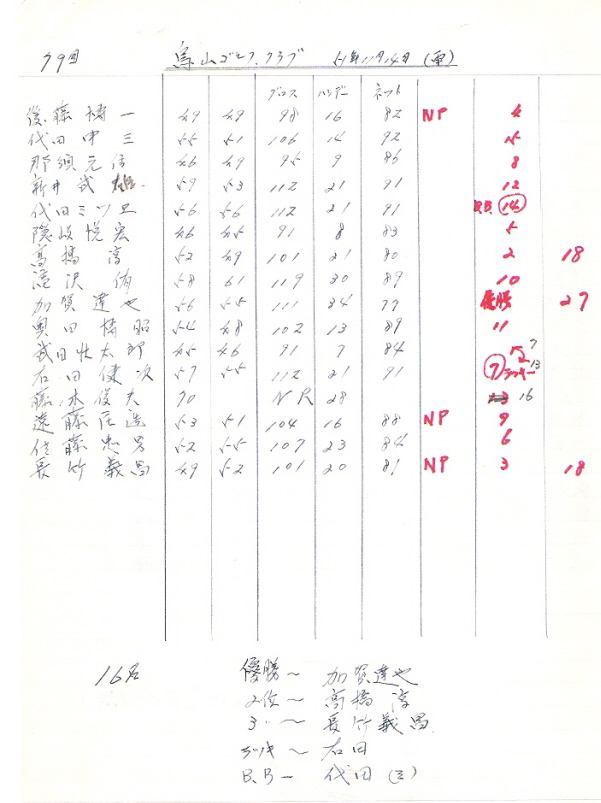 79回 烏山ゴルフ.クラブ 51年11月14日
グロス ハンデー ネット
後藤橘一 49 49 98 16 82 NP 4
代田中三 55 51 106 14 92 15
那須元信 46 49 95 9 86 8
新井武雄 59 53 112 21 91 12
代田ミツヱ 56 56 112 21 91 B.B. 14
隠岐悦宏 46 45 91 8 83 5
高橋淳 52 49 101 21 80 2 18
滝沢侑 58 61 119 30 89 10
加賀達也 56 55 111 34 77 優勝 27
奥田橘昭 54 48 102 13 89 11
武田性太郎 45 46 91 7 84 7
右田健次 57 55 112 21 91 7 ラッキー 13
藤木俊夫 70 NR 28 16
遠藤庄造 53 51 104 16 88 NP 9
佐藤忠男 52 55 107 23 84 6
長竹義昌 49 52 101 20 81 NP 3 18
16名
優勝〜 加賀達也
2位〜 高橋淳
3〃〜 長竹義昌
ラッキ〜 右田
B.B― 代田(ミ)